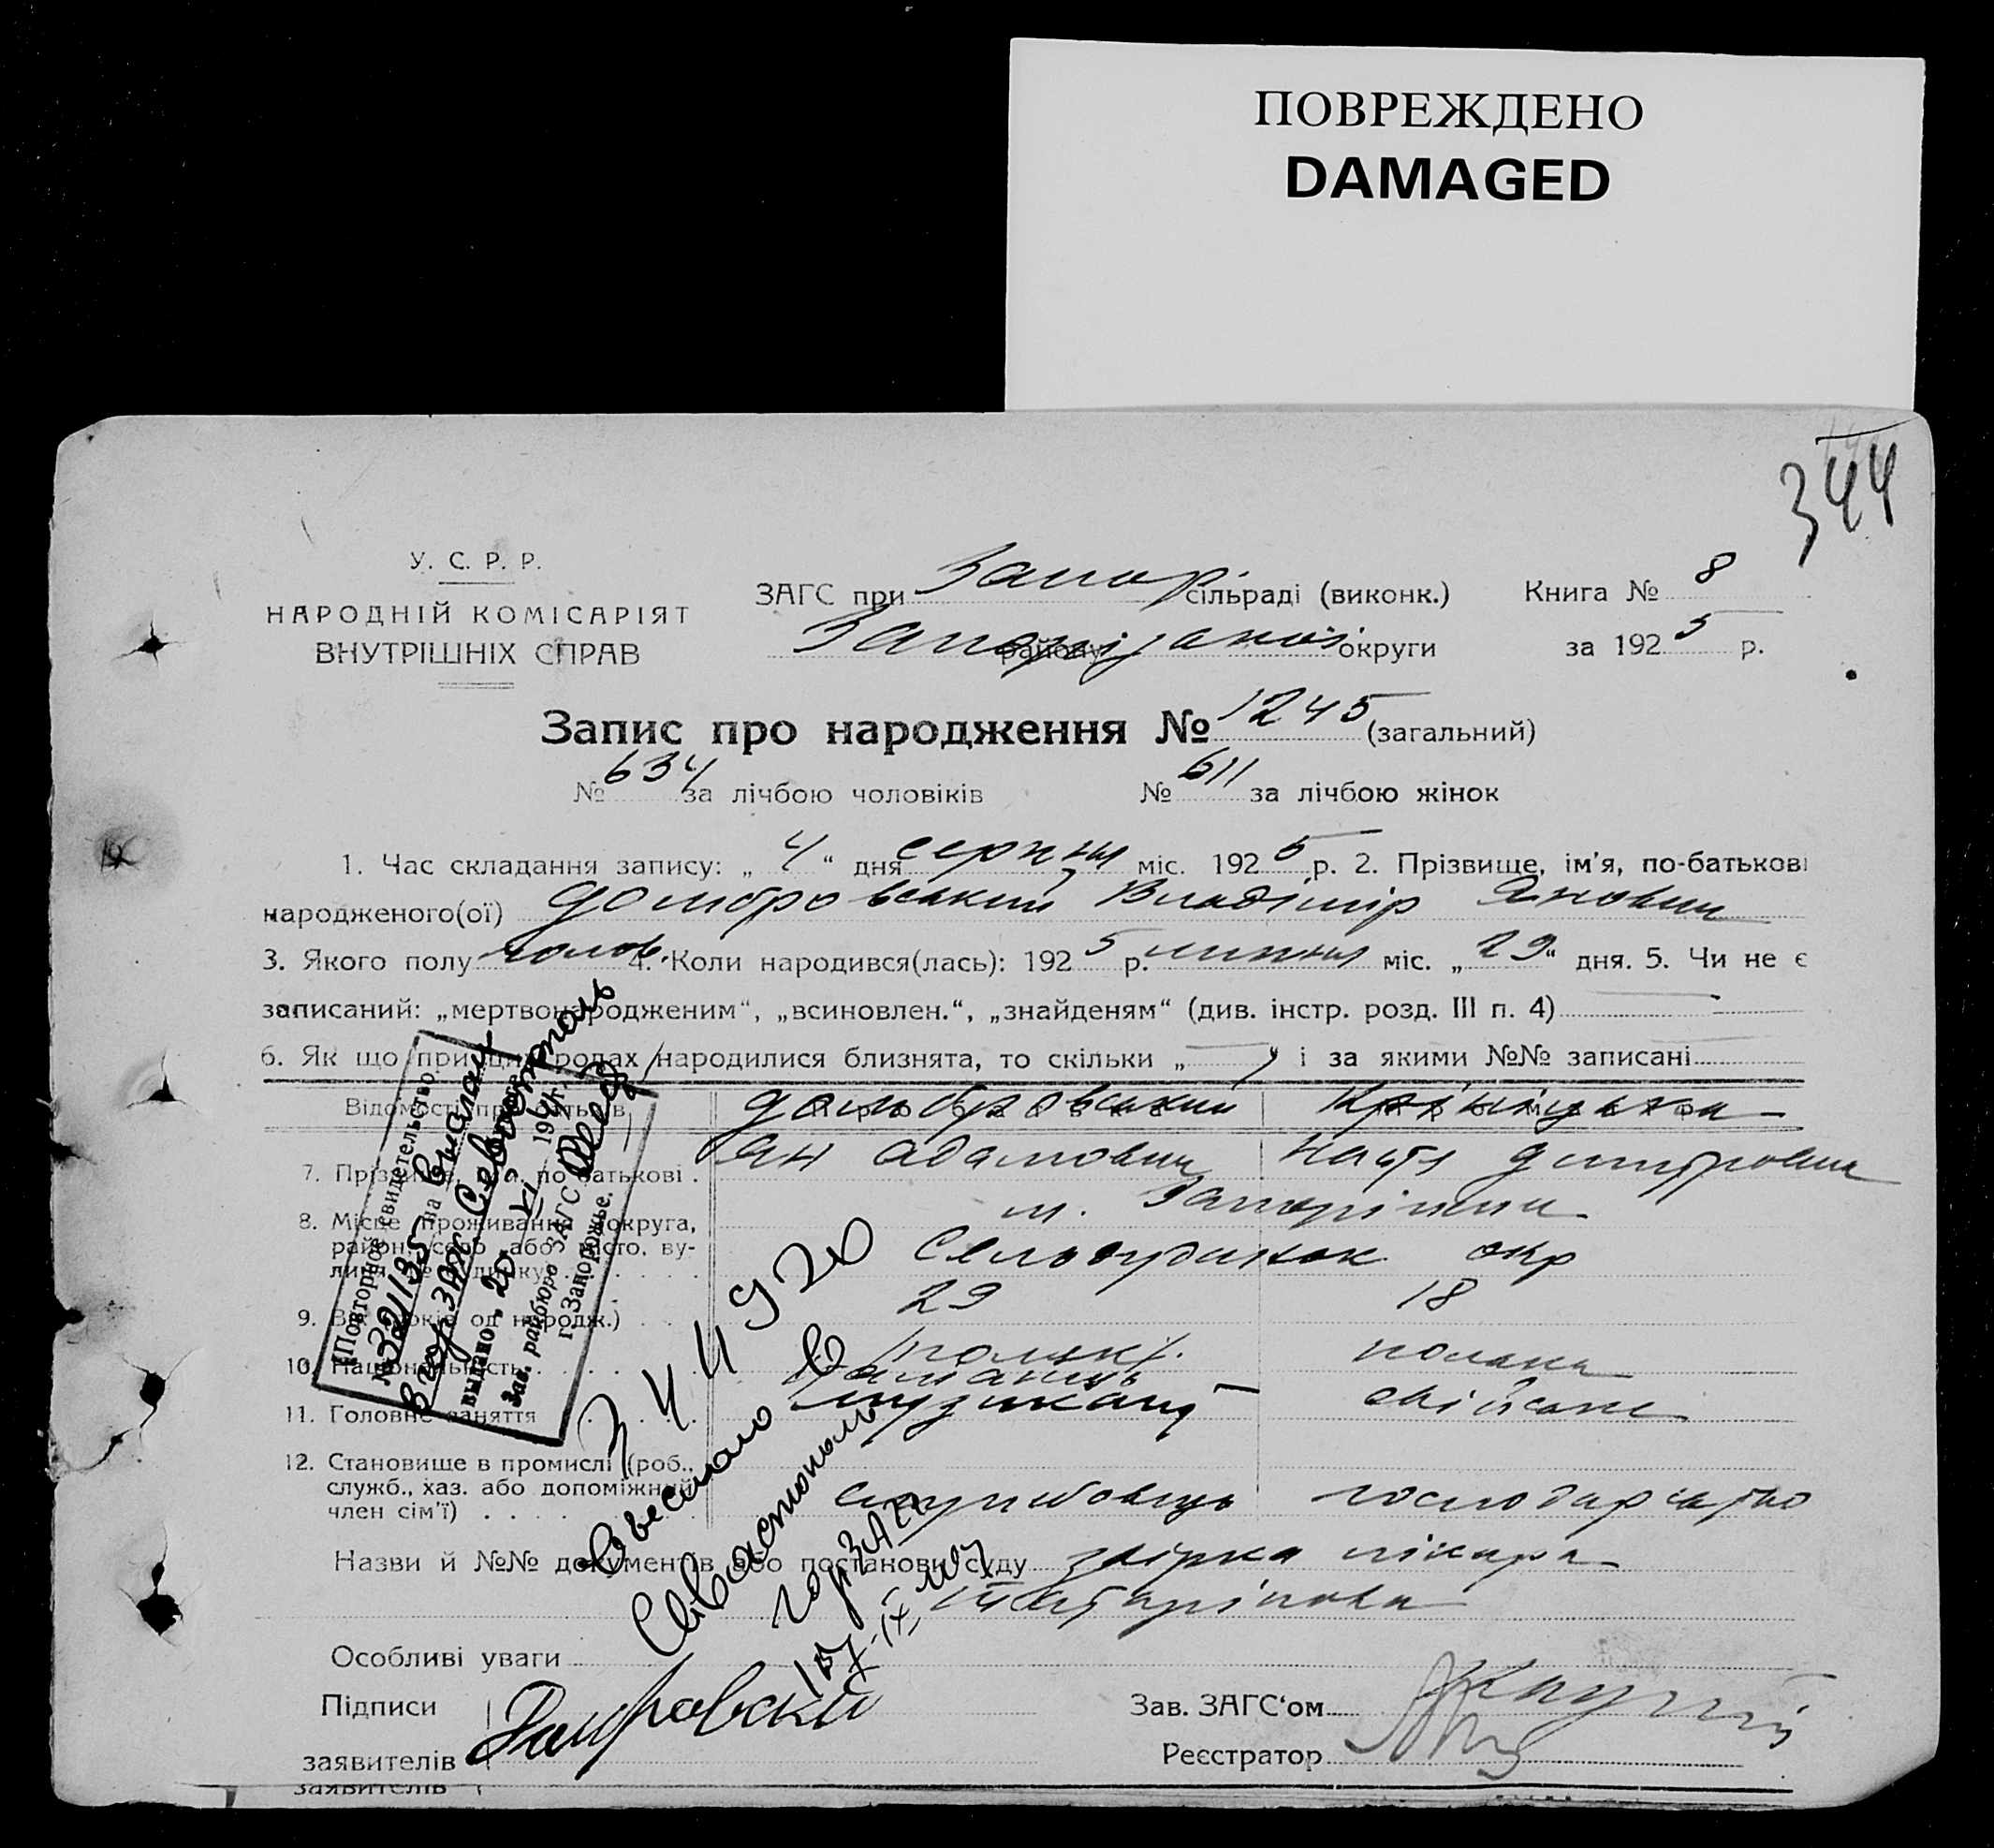 ПОВРЕЖДЕНО
DAMAGED
344
У. С. Р. Р.
НАРОДНІЙ КОМІСАРІЯТ
ВНУТРІШНІХ СПРАВ
ЗАГС при Запор. сільраді (виконк.)
району округи
Книга № 8
за 1925 р.
Запис про народження № 1245 (загальний)
№ 634 за лічбою чоловіків № 611 за лічбою жінок
1. Час складання запису: „ 4 “ дня серпня міс. 1925 р. 2. Прізвище, ім'я, по-батькові
народженого(ої) Домбровський Владімір Янович
3. Якого полу чолов. 4. Коли народився(лась): 1925 р. липня міс. „ 29 “ дня. 5. Чи не є
записаний: „мертвонародженим“, „всиновлен.“, „знайденям“ (див. інстр. розд. III п. 4)
6. Як що при цих родах народилися близнята, то скільки „ “ і за якими №№ записані
Відомості про батьків
Домбровський
7. Прізвище, ім'я, по-батькові . Ян Адамович Настя Дмитровна
8. Місце проживання (округа,
район, село або місто, ву-
лиця, № будинку)
м. Запоріжжя
окр
9. Вік (років од народж.) 29 18
10. Національність поляк
11. Головне заняття музикант
12. Становище в промислі (роб.,
служб., хаз. або допоміжний
член сім'ї) службовець господарство
Назви й №№ документів або постанови суду довірка лікаря
Особливі уваги
Підписи
заявителів
Зав. ЗАГС‘ом
Реєстратор
заявителів
Повторное свидетельство
№ 321135 на
ГорЗАГС Севастополь
выдано „ 20 VI 194 г.
Зав. райбюро ЗАГС
г. Запорожье.
344920
Выслало в
Севастополь
горЗАГС